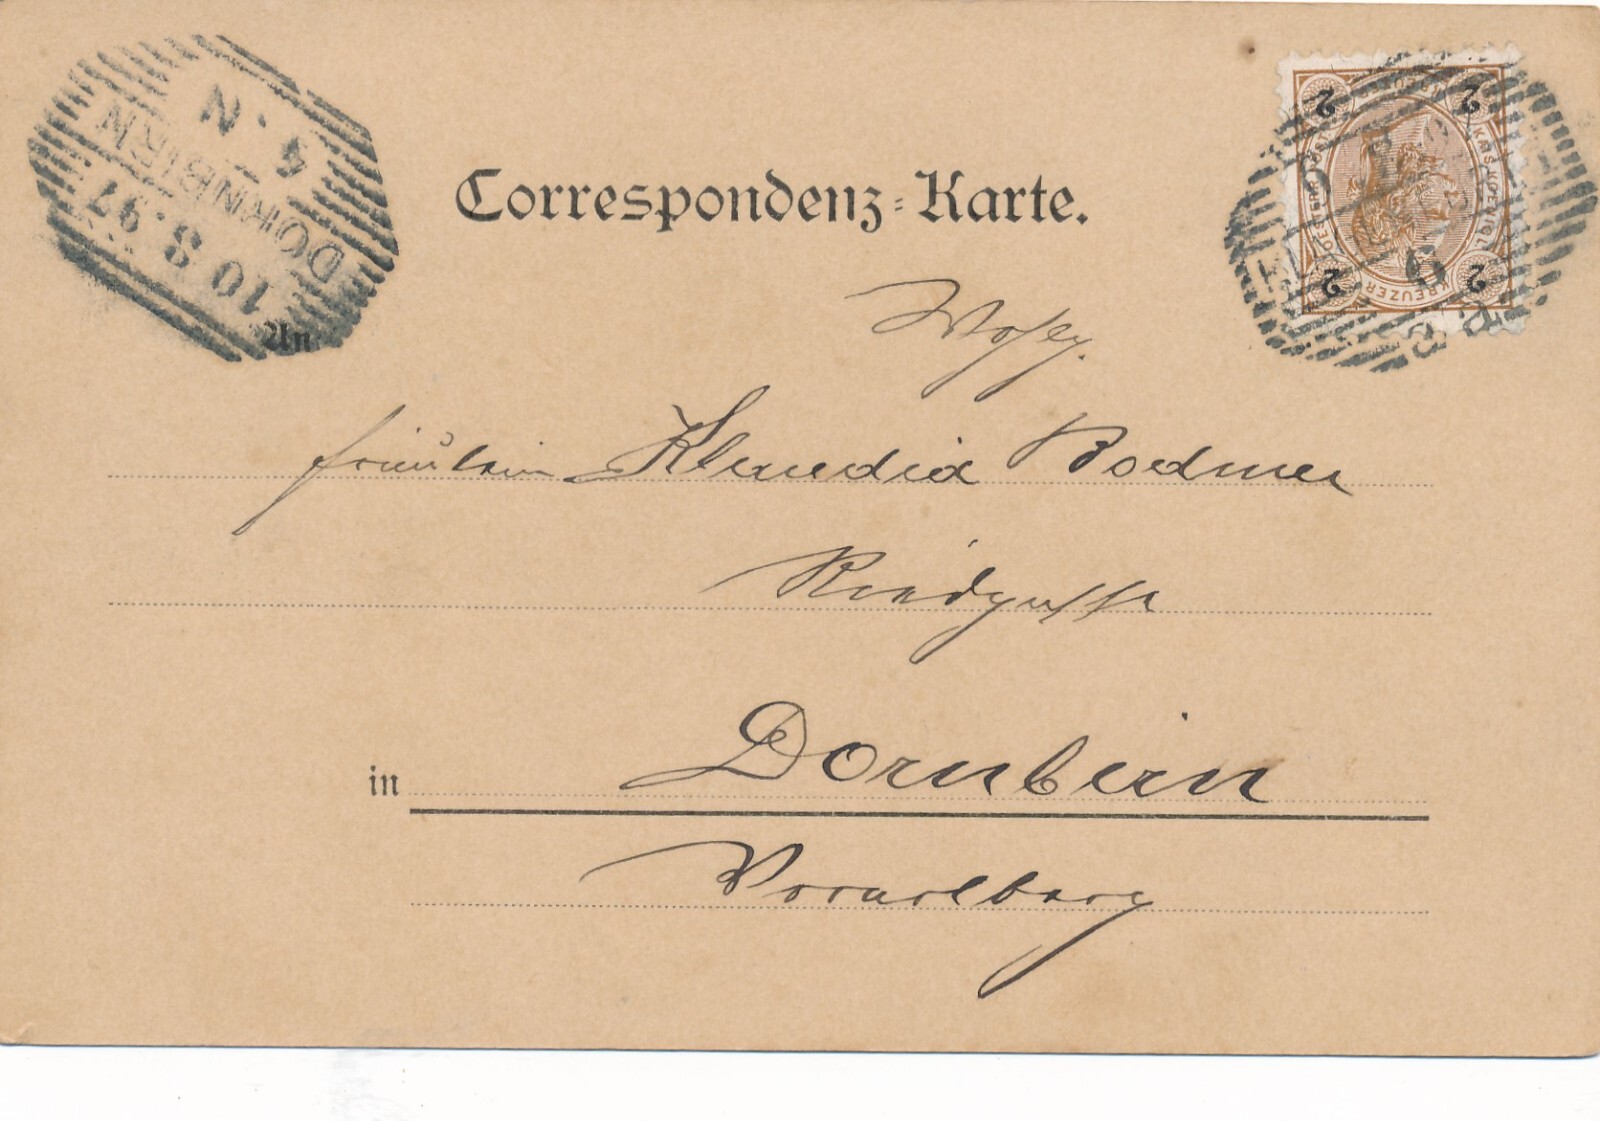 4.N
DORNBIRN
10 8.97
Correspondenz-Karte.
2 2
KAIS.KOENIGL
KREUZER
2 2
An
Wohlg.
Fräulein Klaudia Bodmer
Riedgasse
in Dornbirn
Vorarlberg